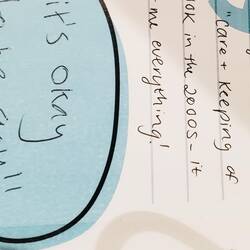 "Care + Keeping of
ok in the 2000s - it
me everything!
it's okay